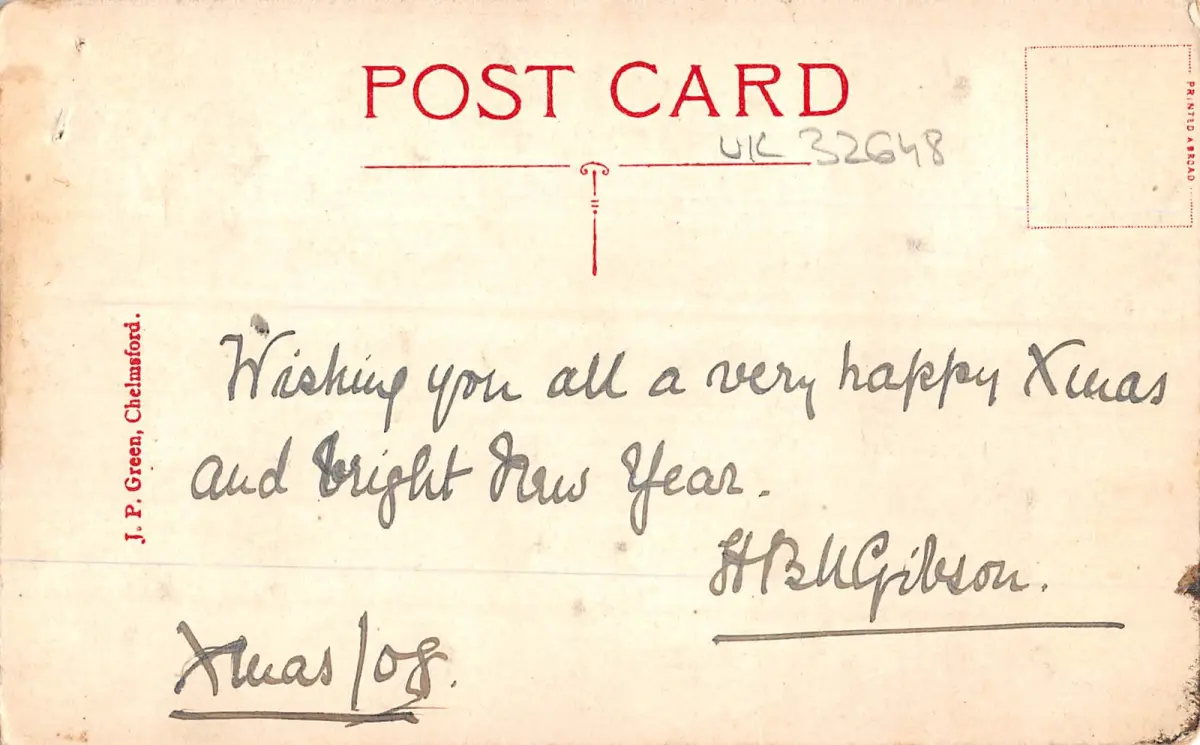 POST CARD
UK 32648
PRINTED ABROAD
J. P. Green, Chelmsford.
Wishing you all a very happy Xmas
and bright New Year.
H B M Gibson.
Xmas /08.